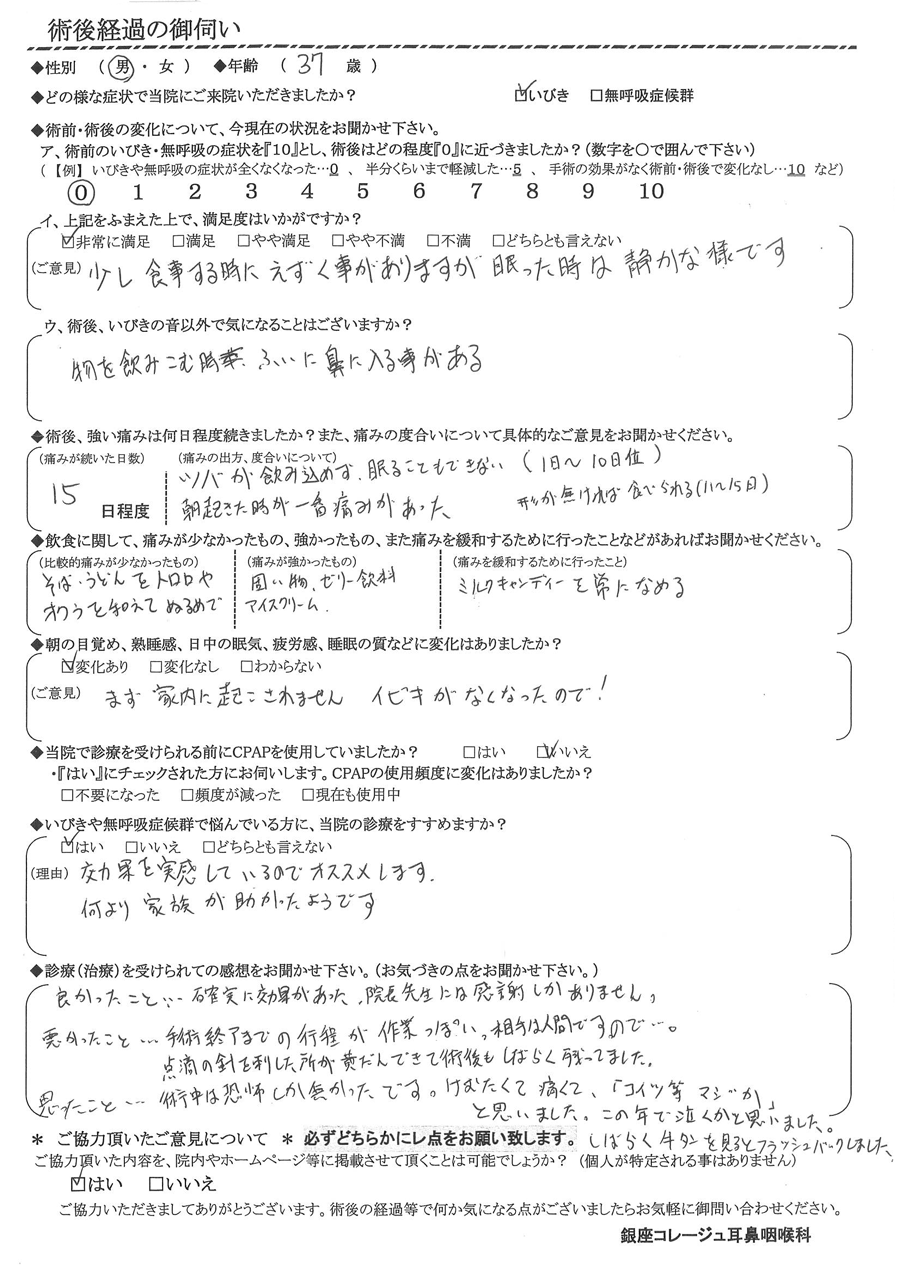 術後経過の御伺い
◆性別 （ 男 ・ 女 ） ◆年齢 （ 37 歳 ）
◆どの様な症状で当院にご来院いただきましたか？ ☑いびき □無呼吸症候群
◆術前・術後の変化について、今現在の状況をお聞かせ下さい。
ア、術前のいびき・無呼吸の症状を『10』とし、術後はどの程度『0』に近づきましたか？（数字を〇で囲んで下さい）
（ 【例】 いびきや無呼吸の症状が全くなくなった…0 、 半分くらいまで軽減した…5 、 手術の効果がなく術前・術後で変化なし…10 など）
0 1 2 3 4 5 6 7 8 9 10
イ、上記をふまえた上で、満足度はいかがですか？
☑非常に満足 □満足 □やや満足 □やや不満 □不満 □どちらとも言えない
（ご意見） 少し食事する時にえずく事がありますが眠った時は静かな様です
ウ、術後、いびきの音以外で気になることはございますか？
物を飲みこむ時 ふいに鼻に入る事がある
◆術後、強い痛みは何日程度続きましたか？また、痛みの度合いについて具体的なご意見をお聞かせください。
（痛みが続いた日数） （痛みの出方、度合いについて）
15 日程度
ツバが飲み込めず、眠ることもできない （1日〜10日位）
朝起きた時が一番痛みがあった 形が無ければ食べられる（11〜15日）
◆飲食に関して、痛みが少なかったもの、強かったもの、また痛みを緩和するために行ったことなどがあればお聞かせください。
（比較的痛みが少なかったもの） （痛みが強かったもの） （痛みを緩和するために行ったこと）
そば・うどんをトロロや 固い物、ゼリー飲料 ミルクキャンディーを常になめる
オクラを和えてぬるめで アイスクリーム.
◆朝の目覚め、熟睡感、日中の眠気、疲労感、睡眠の質などに変化はありましたか？
☑変化あり □変化なし □わからない
（ご意見） まず家内に起こされません イビキがなくなったので！
◆当院で診療を受けられる前にCPAPを使用していましたか？ □はい ☑いいえ
・『はい』にチェックされた方にお伺いします。CPAPの使用頻度に変化はありましたか？
□不要になった □頻度が減った □現在も使用中
◆いびきや無呼吸症候群で悩んでいる方に、当院の診療をすすめますか？
☑はい □いいえ □どちらとも言えない
（理由） 効果を実感しているのでオススメします.
何より家族が助かったようです
◆診療（治療）を受けられての感想をお聞かせ下さい。（お気づきの点をお聞かせ下さい。）
良かったこと… 確実に効果があった、院長先生には感謝しかありません。
悪かったこと… 手術終了までの行程が作業っぽい。相手は人間ですので…。
点滴の針を刺した所が黄だんできて術後もしばらく残ってました.
思たこと… 術中は恐怖しか無かったです。けむたくて痛くて、「コイツ等マジか
と思いました。この年で泣くかと思いました。
しばらく牛タンを見るとフラッシュバックしました.
＊ ご協力頂いたご意見について ＊ 必ずどちらかにレ点をお願い致します。
ご協力頂いた内容を、院内やホームページ等に掲載させて頂くことは可能でしょうか？ （個人が特定される事はありません）
☑はい □いいえ
ご協力いただきましてありがとうございます。術後の経過等で何か気になる点がございましたらお気軽に御問い合わせください。
銀座コレージュ耳鼻咽喉科